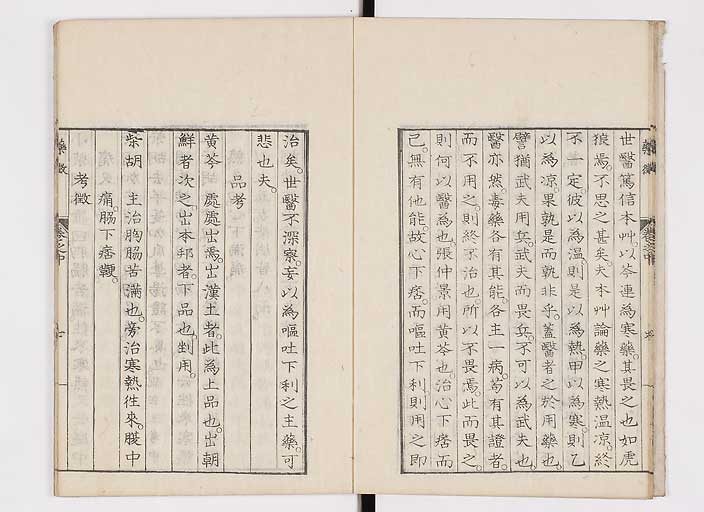 世醫篤信本艸。以芩連為寒藥。其畏之也如虎
狼焉。不思之甚矣。夫本艸論藥之寒熱溫凉。終
不一定。彼以為溫。則是以為熱。甲以為寒。則乙
以為凉。果孰是而孰非乎。蓋醫者之於用藥也。
譬猶武夫用兵。武夫而畏兵。不可以為武夫也。
醫亦然。毒藥各有其能。各主一病。苟有其證者。
而不用之。則終不治也。所以不畏焉。此而畏之。
則何以醫為也。張仲景用黃芩也。治心下痞而
已。無有他能。故心下痞。而嘔吐下利則用之即
藥徵
卷之中
治矣。世醫不深察。妄以為嘔吐下利之主藥。可
悲也夫。
品考
黃芩　處處出焉。出漢土者。此為上品也。出朝
鮮者次之。出本邦者。下品也。剉用。
柴胡　主治胸脇苦滿也。旁治寒熱往來。腹中
痛。脇下痞鞕。
考徵
藥徵
卷之中
七